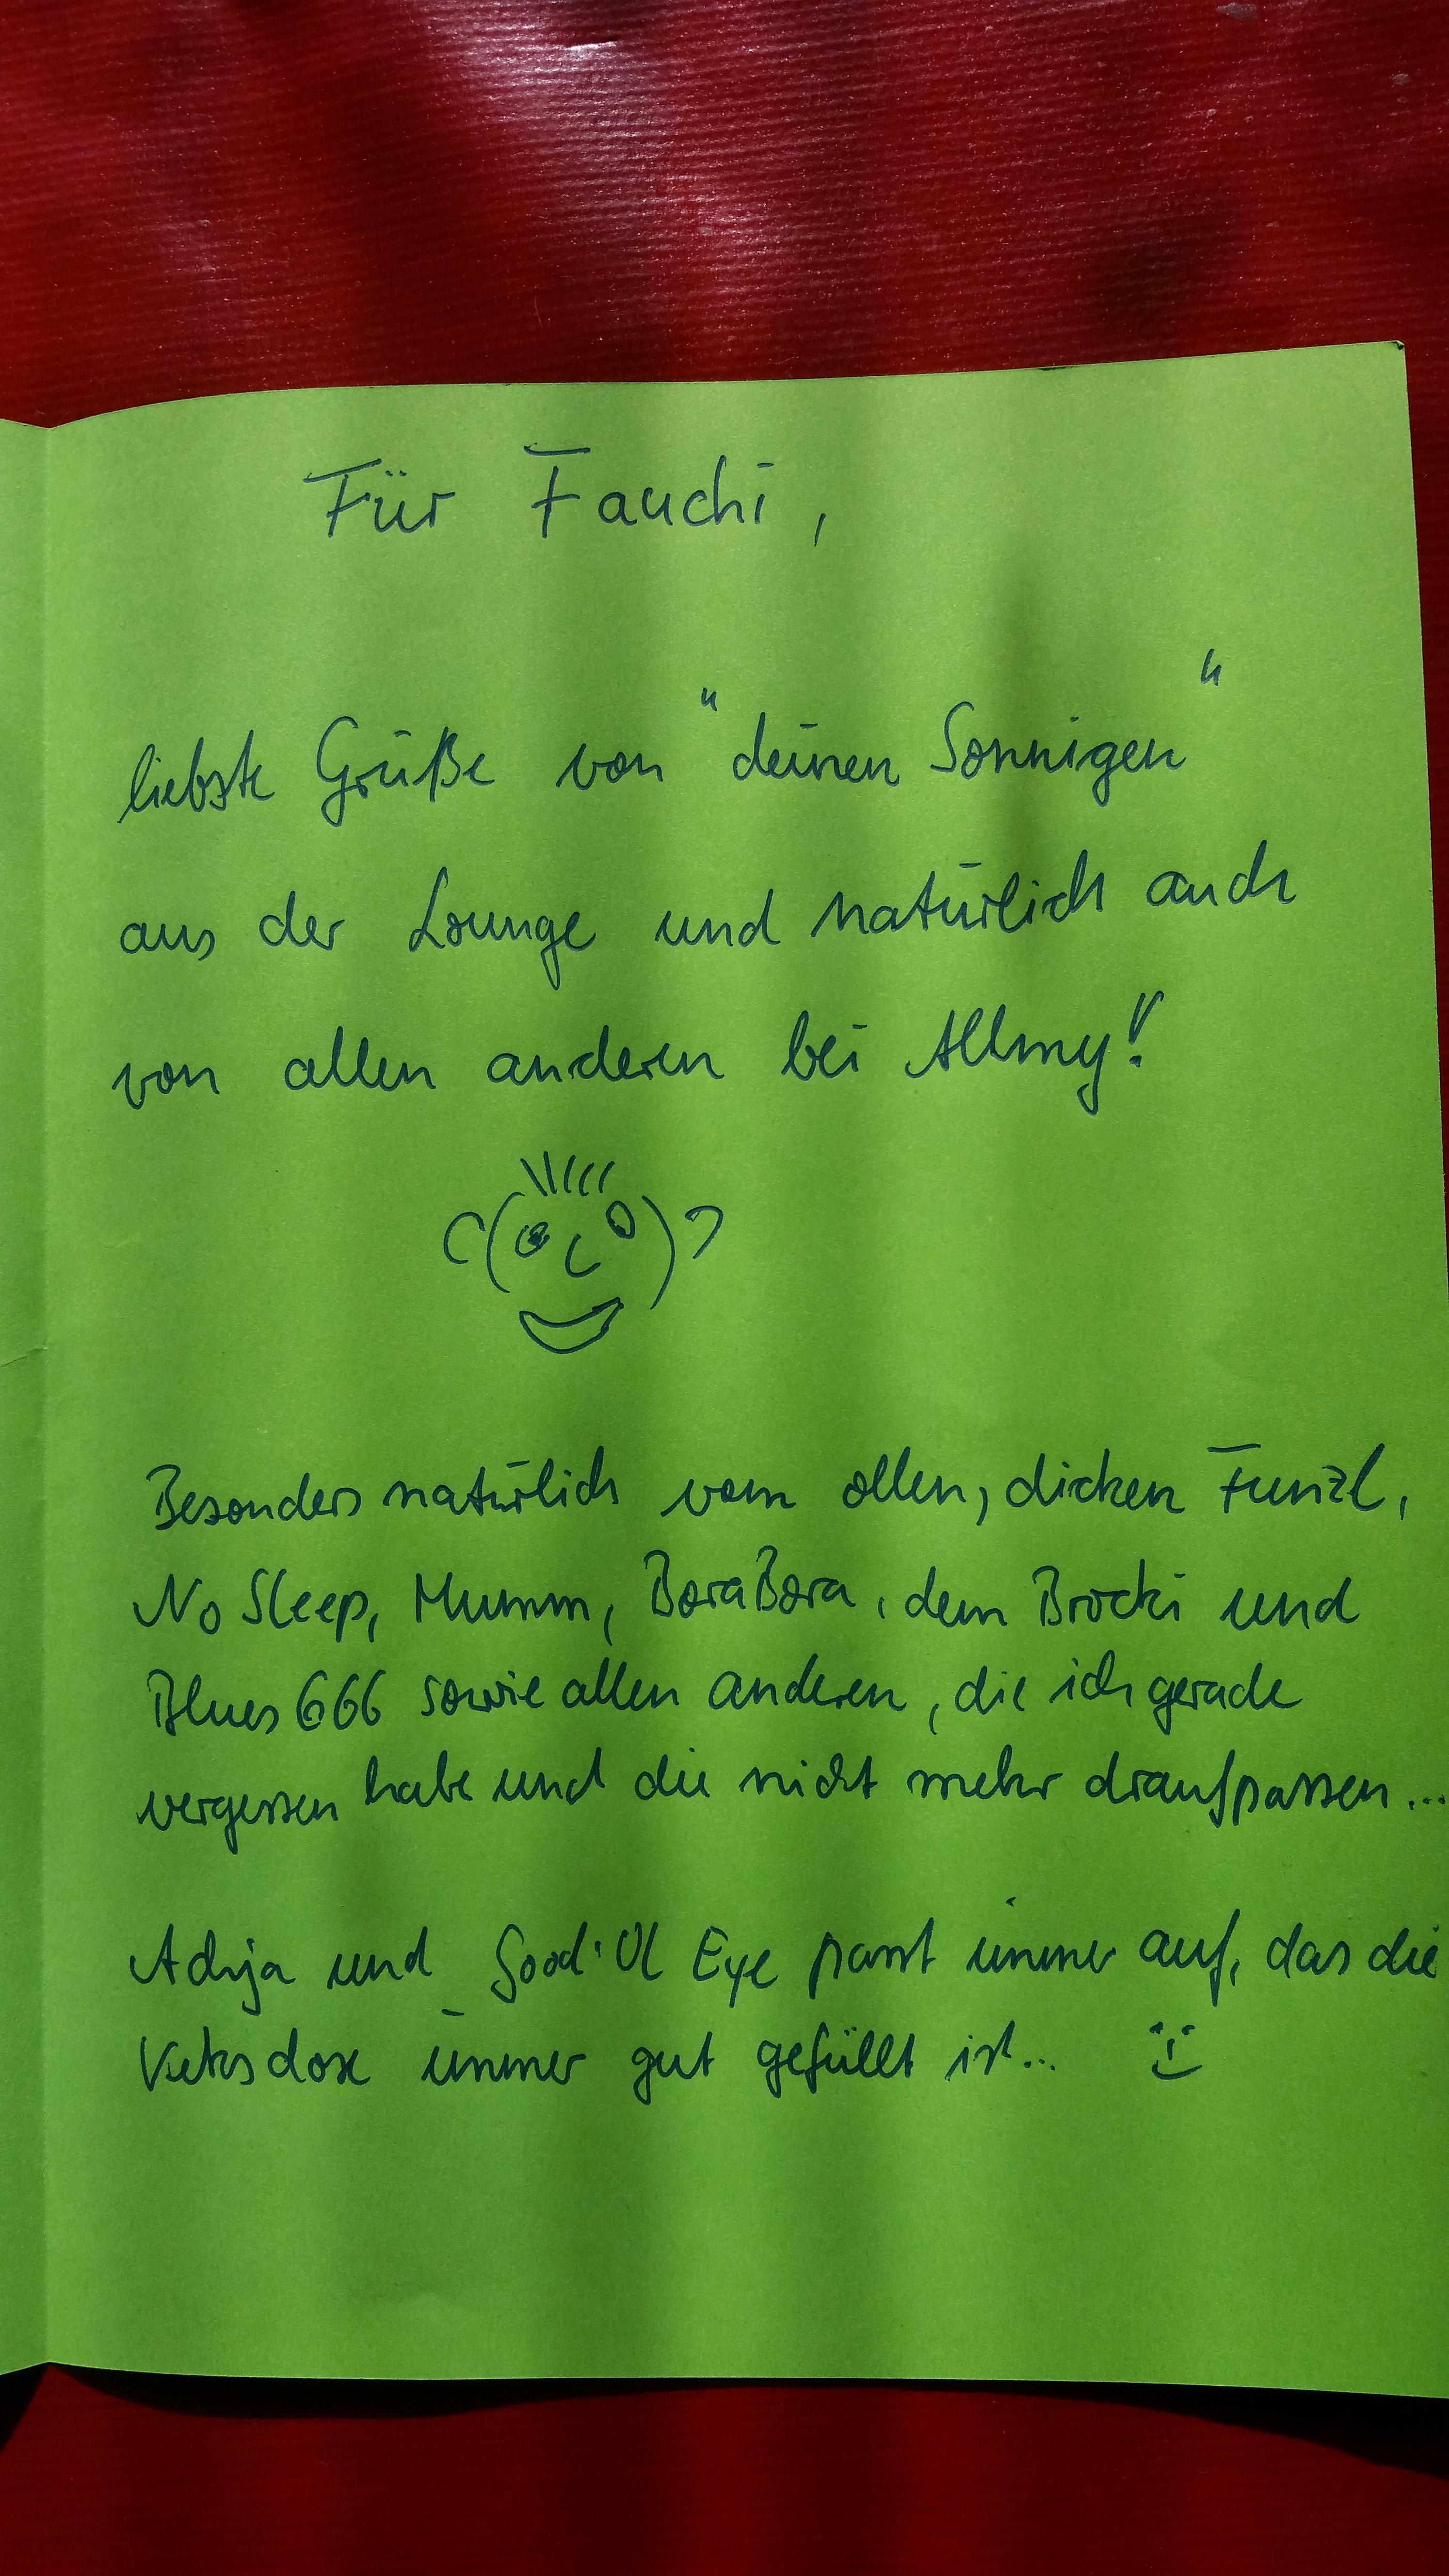 Für Fauchi,
liebste Grüße von "deinen Sonnigen"
aus der Lounge und natürlich auch
von allen anderen bei Allmy!
Besonders natürlich vom ollen, dicken Funzl,
No Sleep, Mumm, BoraBora, dem Brocki und
Blues 666 sowie allen anderen, die ich gerade
vergessen habe und die nicht mehr draufpassen...
und Good'Ol Eye passt immer auf, das die
Keksdose immer gut gefüllt ist... :)